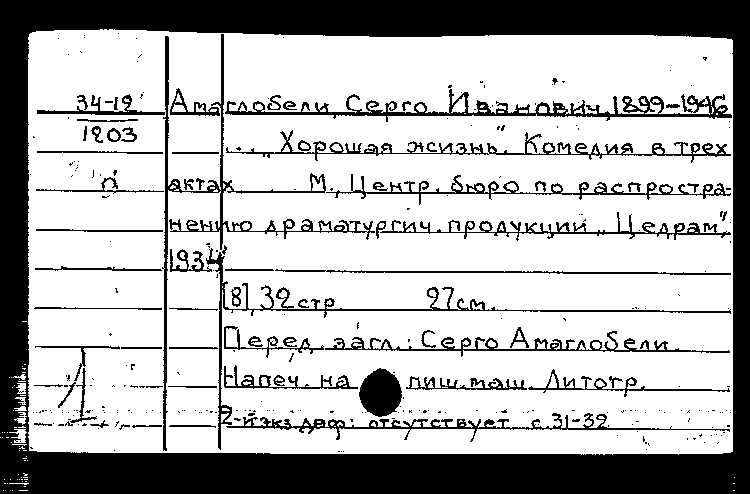 34-12
1203
Амаглобели, Серго Иванович, 1899-1946
... „Хорошая жизнь". Комедия в трех
актах. М., Центр. бюро по распростра-
нению драматургич. продукции „Цедрам",
1934
[8], 32 стр. 27 см.
Перед загл.: Серго Амаглобели.
Напеч. на пиш. маш. Литогр.
2-й экз деф: отсутствует с. 31-32
1